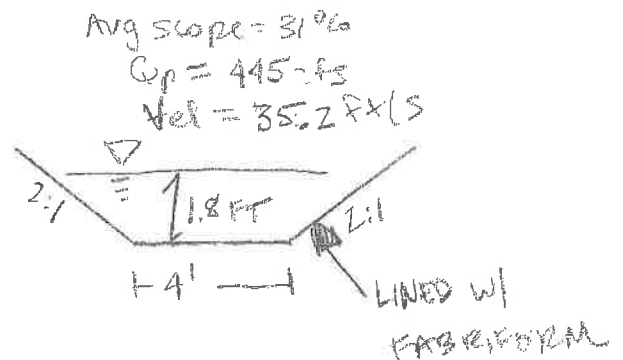 Avg slope = 31%
Qp = 445 cfs
Vel = 35.2 ft/s
2:1
1.8 FT
2:1
4'
LINED W/
FABRIFORM